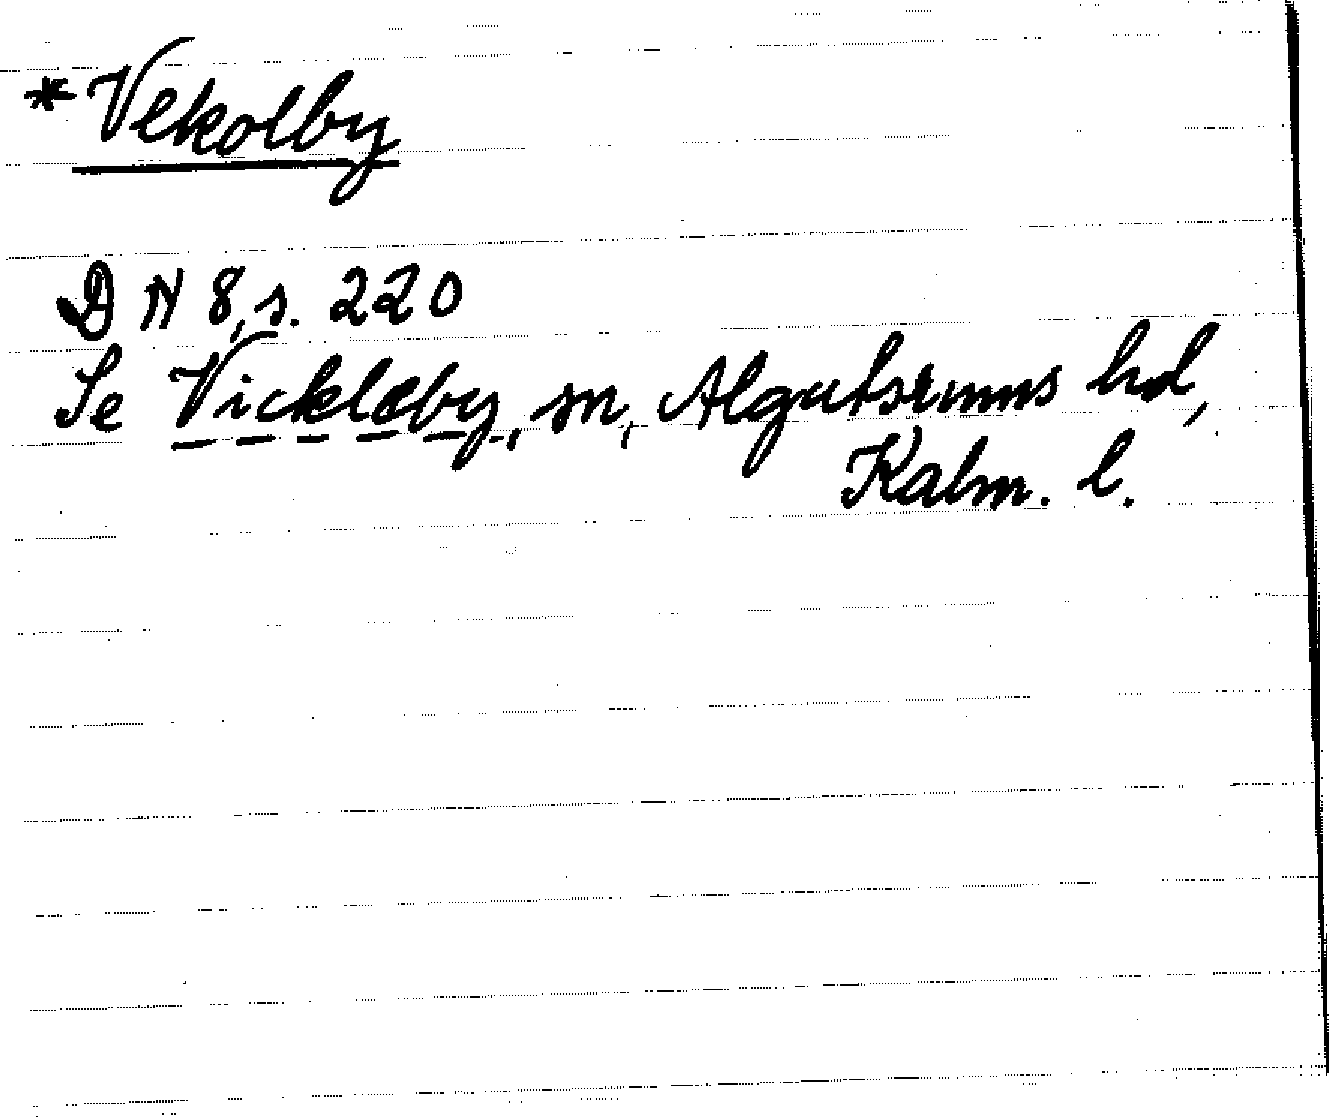 *Vekolby
DN 8, s. 220
Se Vickleby, sn, Algutsrums hd,
Kalm. l.